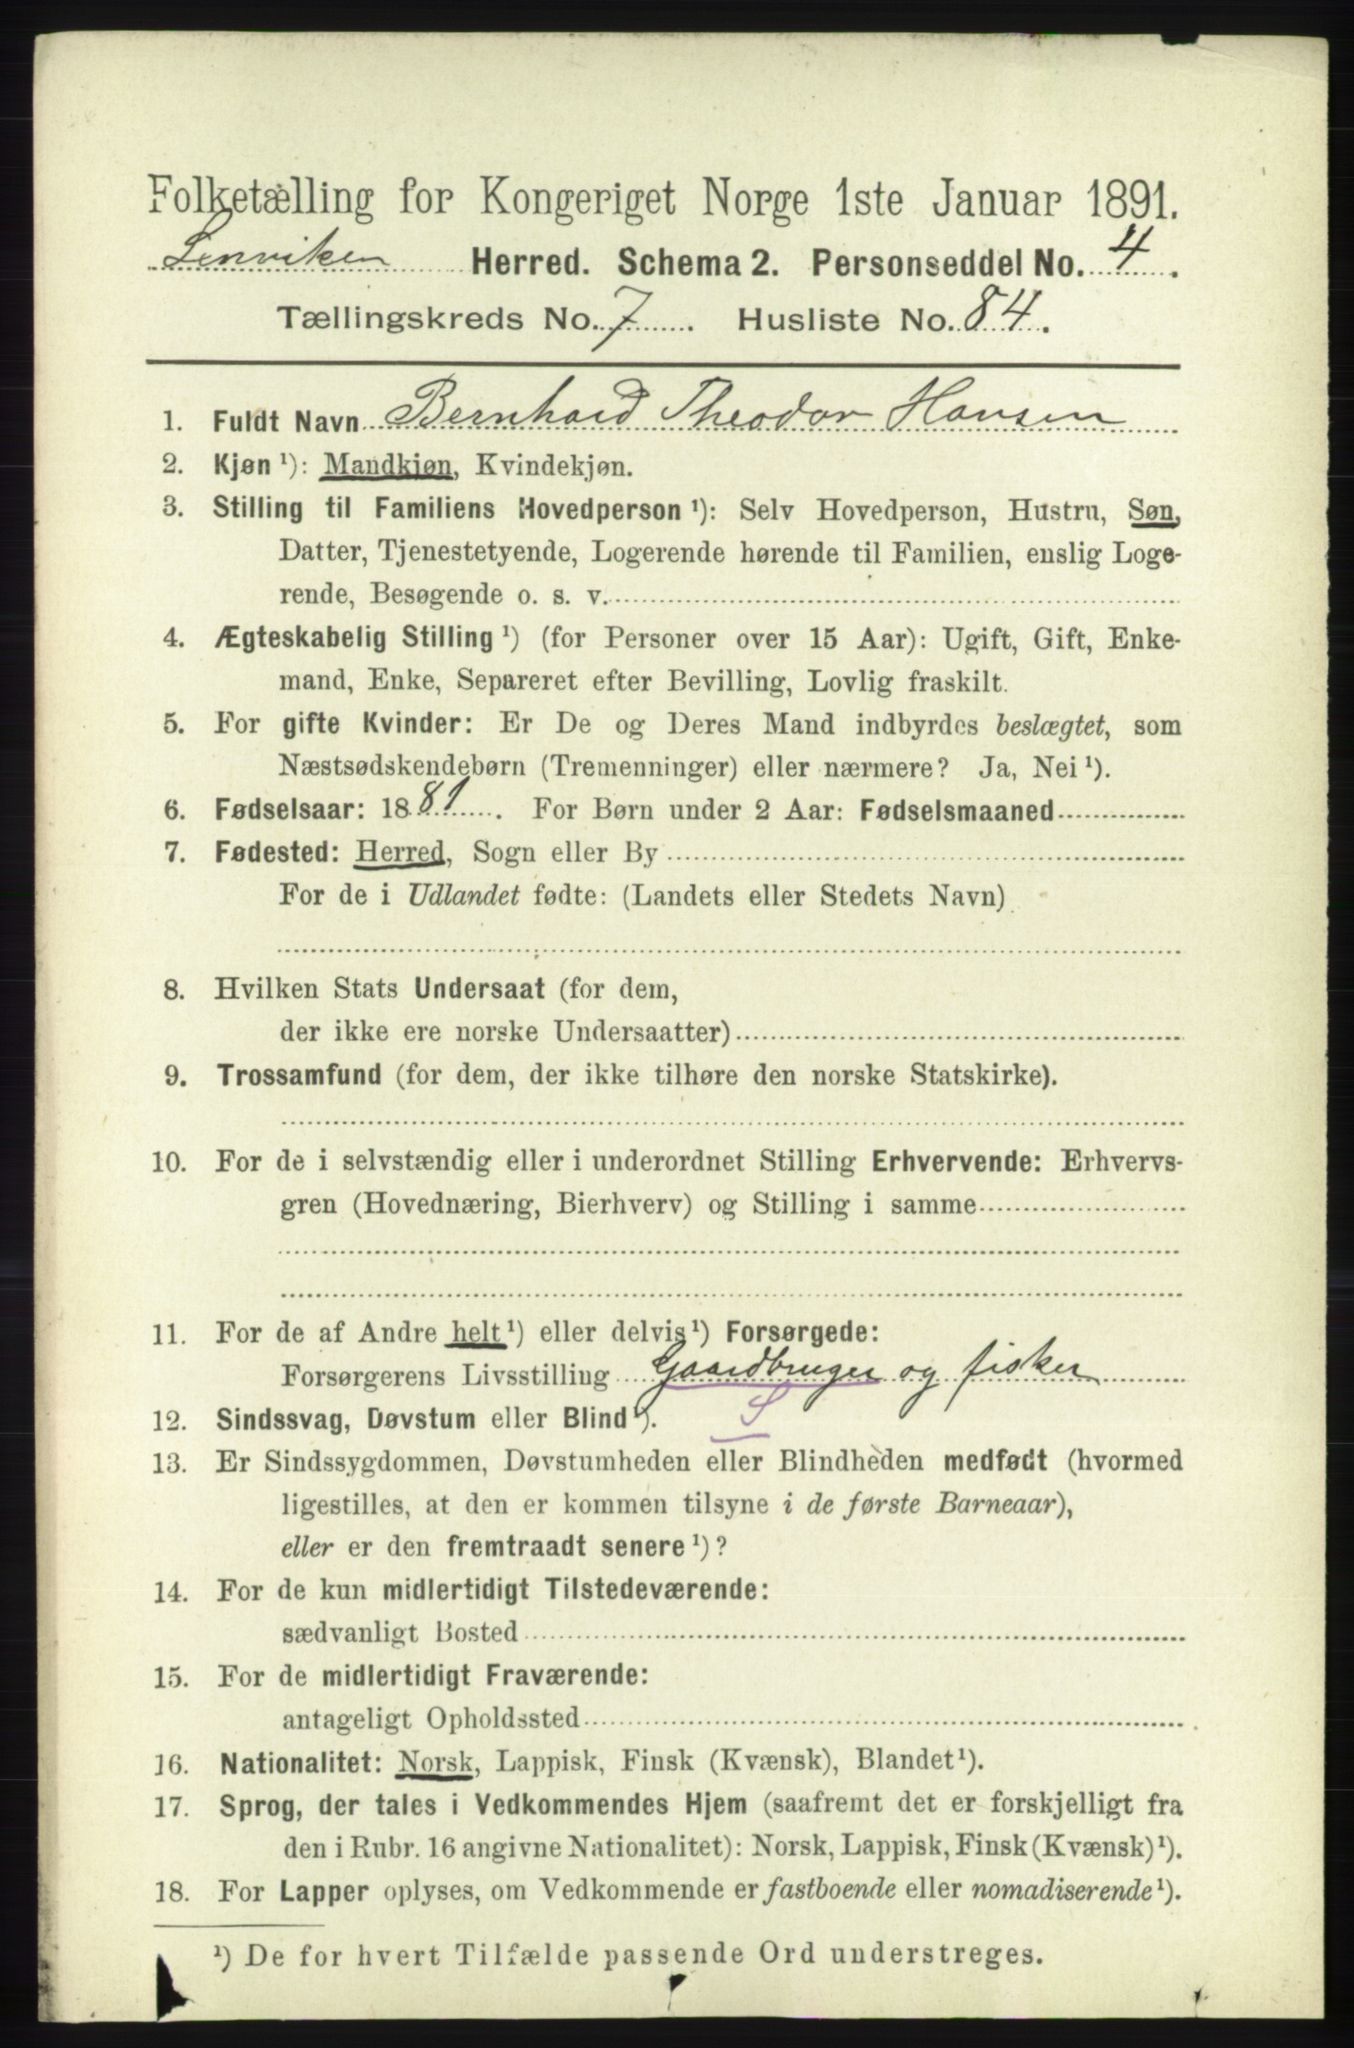 Folketælling for Kongeriget Norge 1ste Januar 1891.
Lenviken Herred. Schema 2. Personseddel No. 4.
Tællingskreds No. 7. Husliste No. 84.
1. Fuldt Navn Bernhard Theodor Hansen
2. Kjøn ¹): Mandkjøn, Kvindekjøn.
3. Stilling til Familiens Hovedperson ¹): Selv Hovedperson, Hustru, Søn,
Datter, Tjenestetyende, Logerende hørende til Familien, enslig Loge-
rende, Besøgende o. s. v.
4. Ægteskabelig Stilling ¹) (for Personer over 15 Aar): Ugift, Gift, Enke-
mand, Enke, Separeret efter Bevilling, Lovlig fraskilt.
5. For gifte Kvinder: Er De og Deres Mand indbyrdes beslægtet, som
Næstsødskendebørn (Tremenninger) eller nærmere? Ja, Nei ¹).
6. Fødselsaar: 1881. For Børn under 2 Aar: Fødselsmaaned
7. Fødested: Herred, Sogn eller By
For de i Udlandet fødte: (Landets eller Stedets Navn)
8. Hvilken Stats Undersaat (for dem,
der ikke ere norske Undersaatter)
9. Trossamfund (for dem, der ikke tilhøre den norske Statskirke).
10. For de i selvstændig eller i underordnet Stilling Erhvervende: Erhvervs-
gren (Hovednæring, Bierhverv) og Stilling i samme
11. For de af Andre helt ¹) eller delvis ¹) Forsørgede:
Forsørgerens Livsstilling Gaardbruger og fisker
12. Sindssvag, Døvstum eller Blind ¹). S
13. Er Sindssygdommen, Døvstumheden eller Blindheden medfødt (hvormed
ligestilles, at den er kommen tilsyne i de første Barneaar),
eller er den fremtraadt senere ¹)?
14. For de kun midlertidigt Tilstedeværende:
sædvanligt Bosted
15. For de midlertidigt Fraværende:
antageligt Opholdssted
16. Nationalitet: Norsk, Lappisk, Finsk (Kvænsk), Blandet ¹).
17. Sprog, der tales i Vedkommendes Hjem (saafremt det er forskjelligt fra
den i Rubr. 16 angivne Nationalitet): Norsk, Lappisk, Finsk (Kvænsk) ¹).
18. For Lapper oplyses, om Vedkommende er fastboende eller nomadiserende ¹).
¹) De for hvert Tilfælde passende Ord understreges.